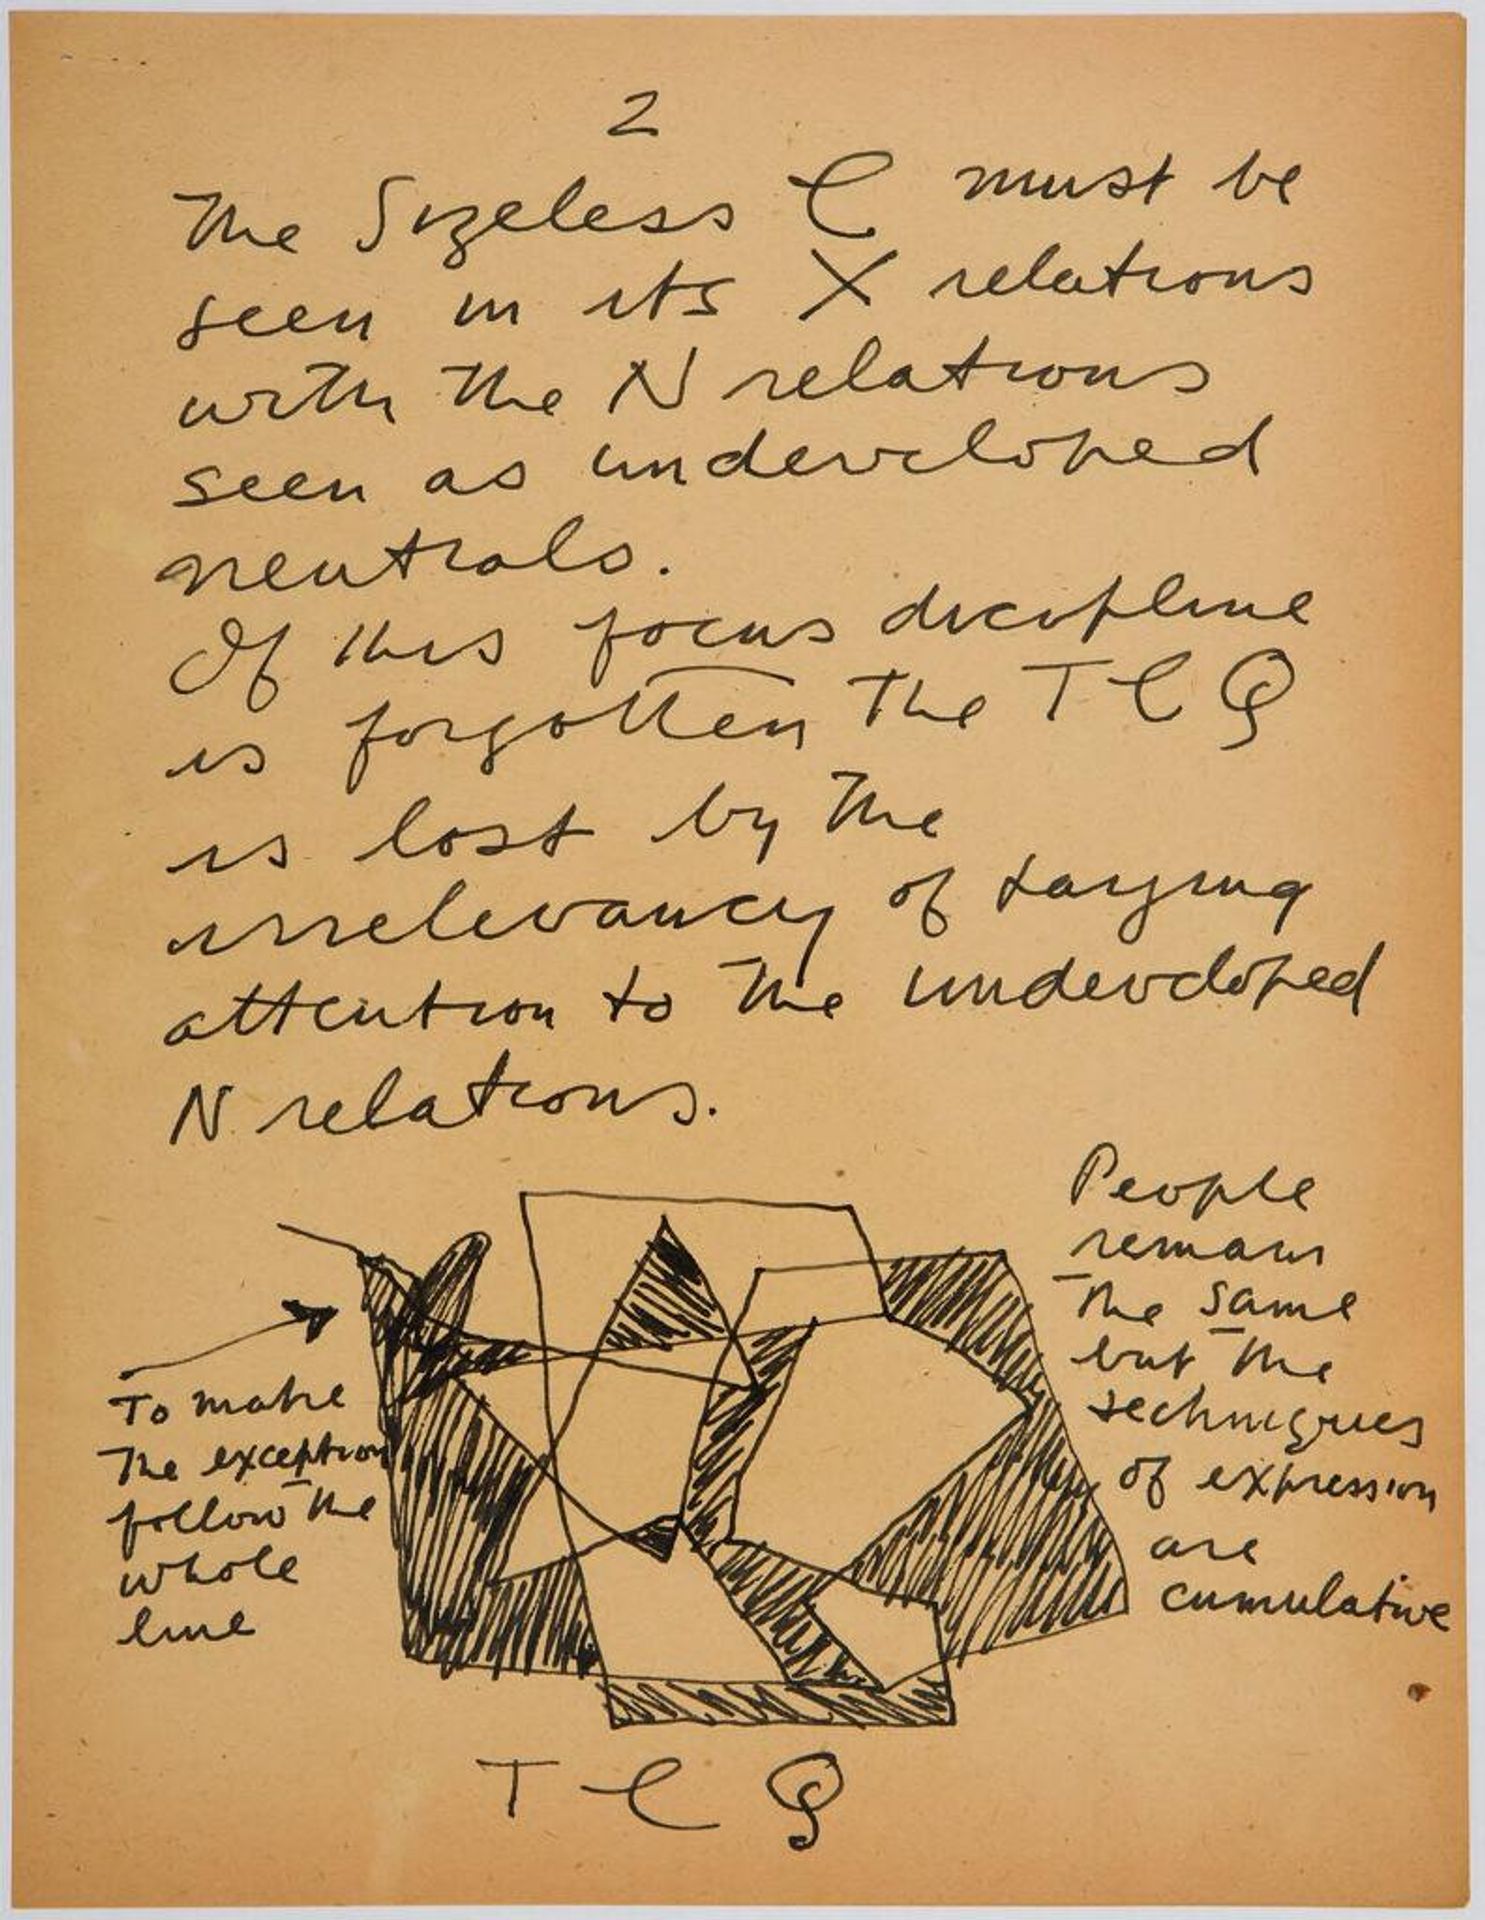 2
The Sizeless C must be
seen in its X relations
with the N relations
seen as undeveloped
neutrals.
If this focus dicipline
is forgotten the T C
is lost by the
irrelevancy of
attention to the undeveloped
N relations.
People
remain
the same
but the
techniques
of expression
are
cumulative
To make
the exception
follow the
whole
line
T C